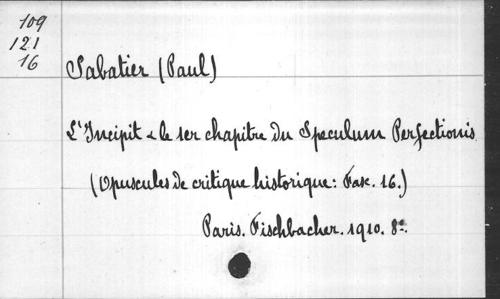 109
121
16
Sabatier (Paul)
L'Incipit & le 1er chapitre du Speculum Perfectionis
(Opuscules de critique historique: Fasc. 16.)
Paris. Fischbacher. 1910. 8º.